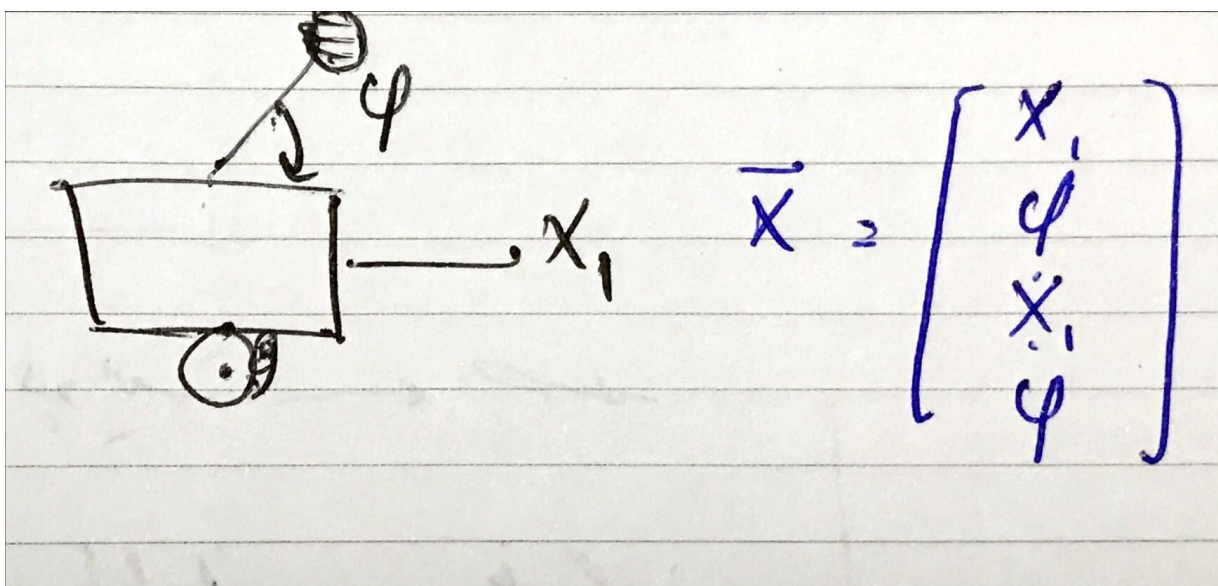 φ
X₁
X̄ = [
X₁
φ
Ẋ₁
φ̇
]